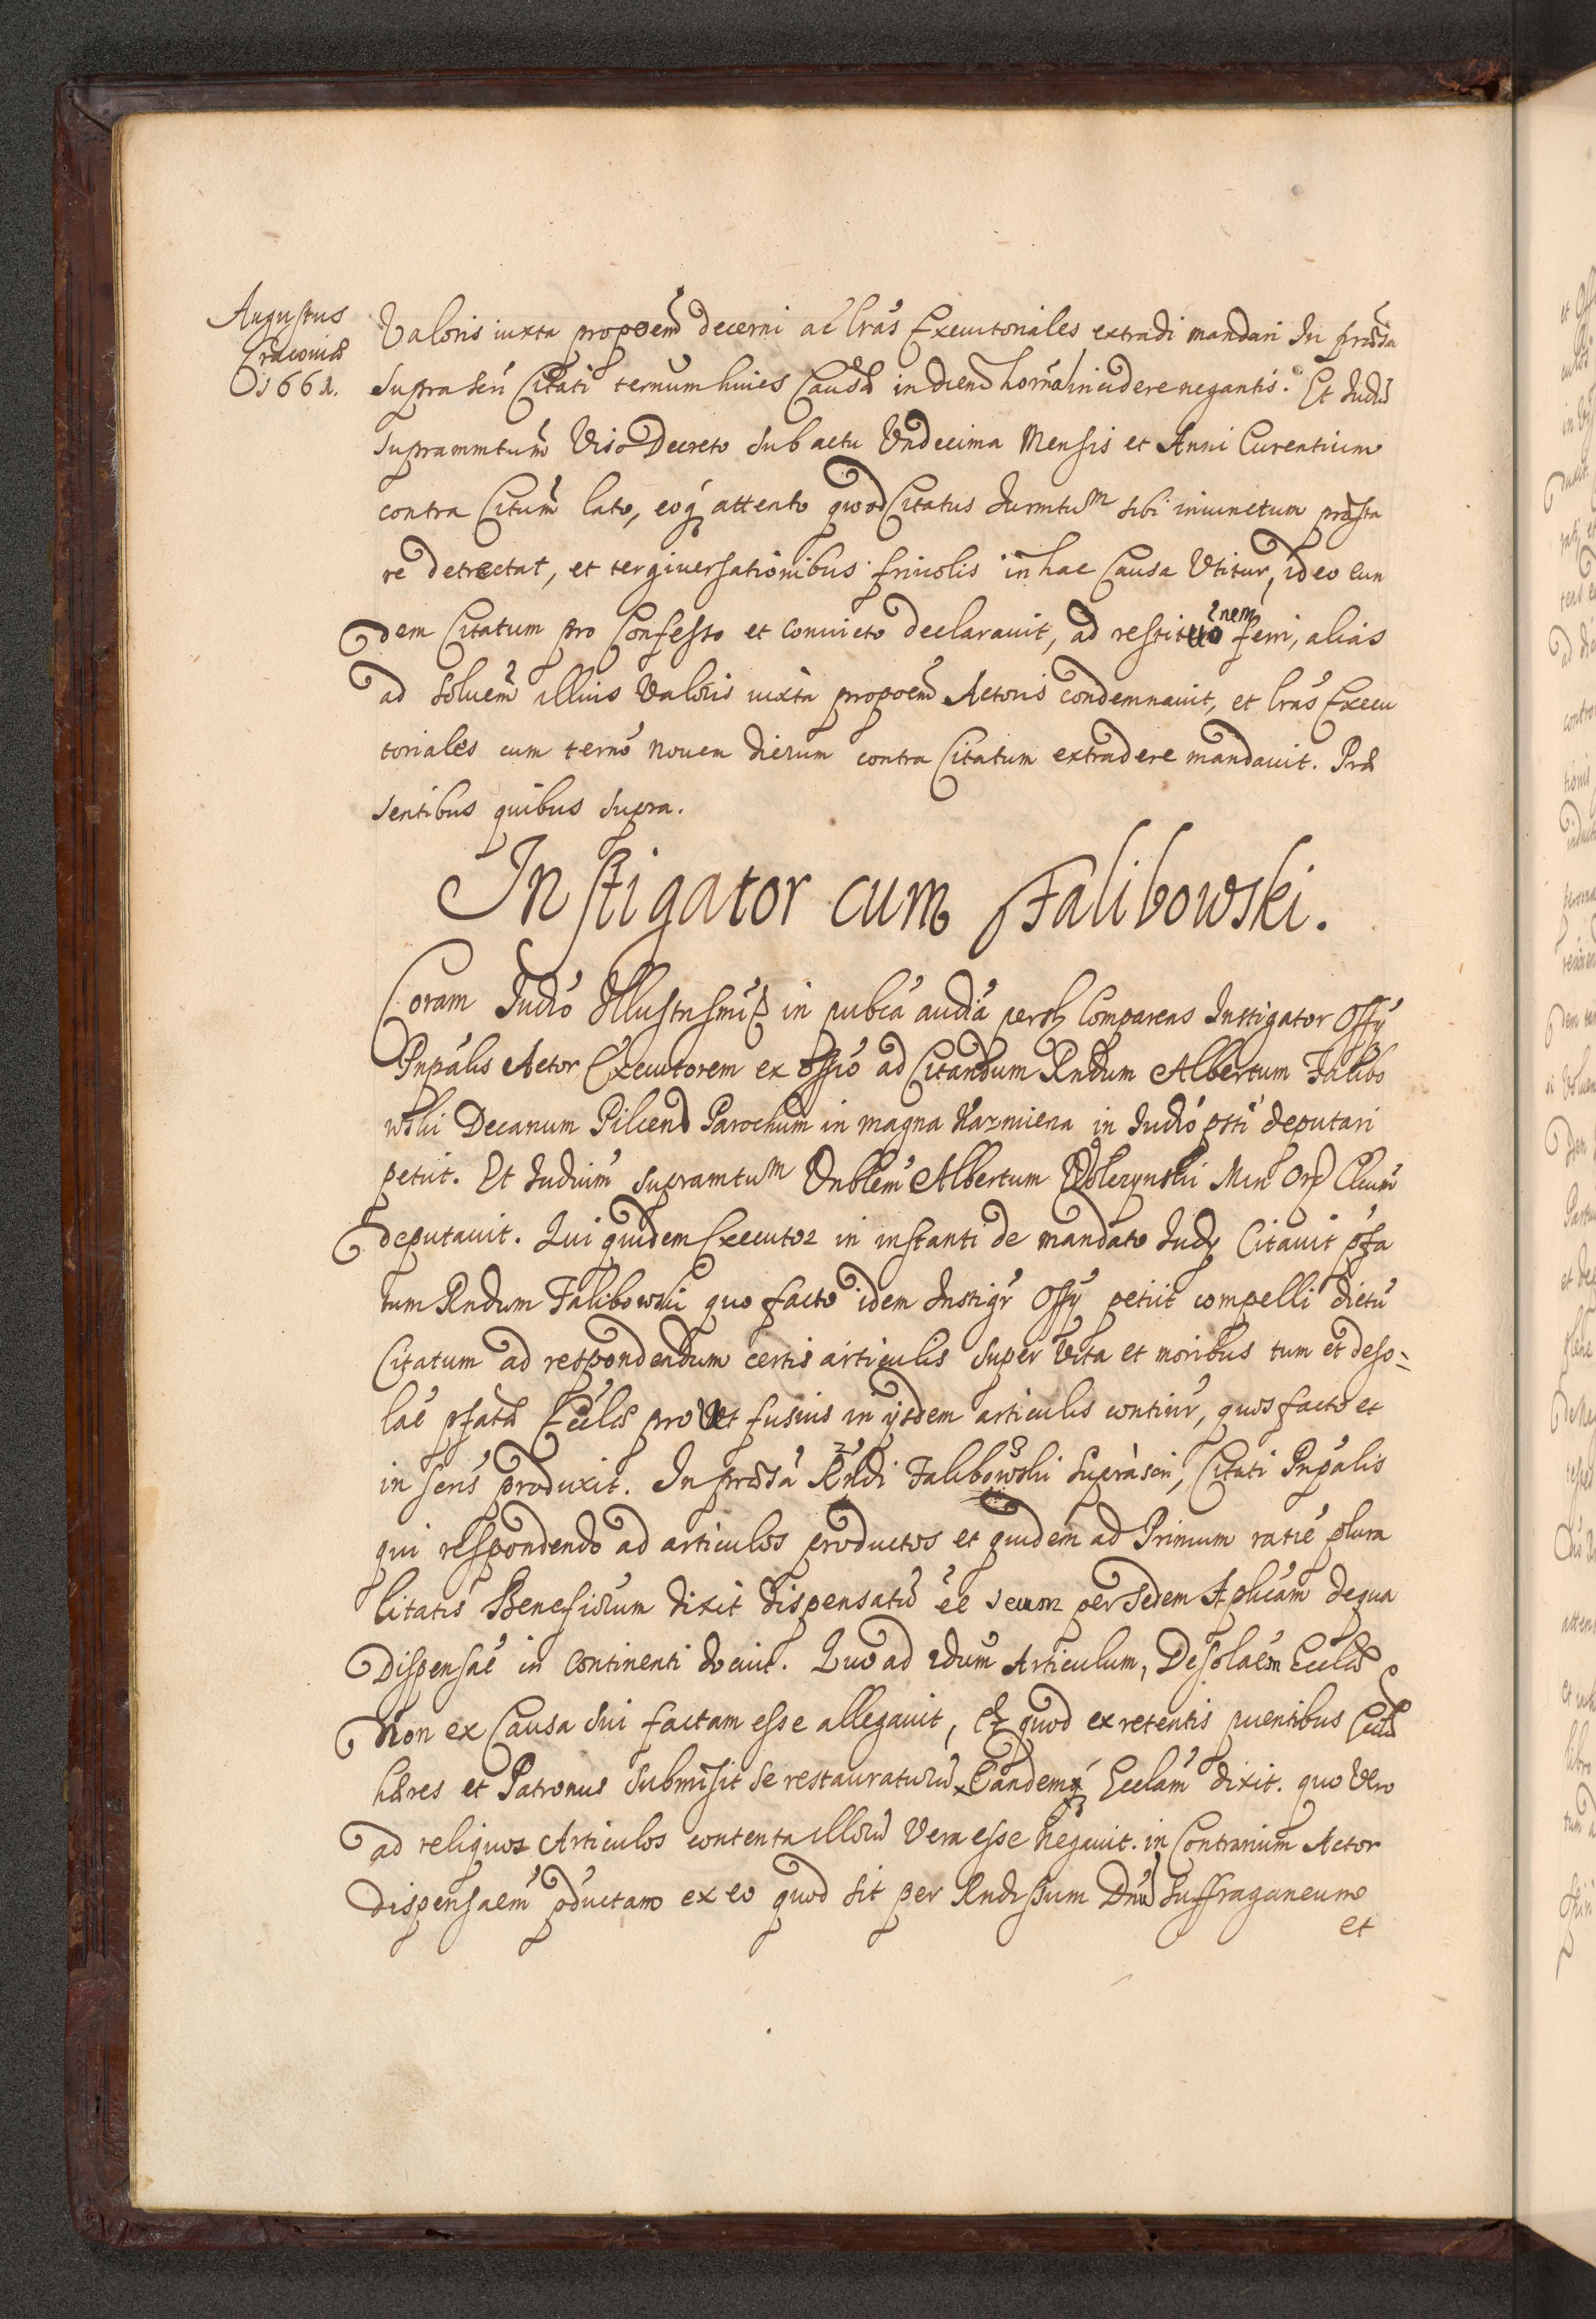 Augustus
Cracoviæ
1661.
Valoris iuxta propoem̃ decerni ac lrás Executoriales extradi mandari In prñtia
suprascri Citati ternum huies Causæ in diem hornã incidere negantis. Et Iudm̃
suprammtum̃ Viso Decreto sub actu Undecima Mensis et Anni Curentium
contra Citum̃ lato, eoq̃ attento quod Citatus Iurmtum sibi iniunctum præsta
re detrectat, et tergiuersationibus friuolis in hac Causa Utitur, ideo eun
dem Citatum pro Confesso et Conuicto declarauit, ad restituo2nem ferri, alias
ad soluem̃ illius Valoris iuxta propoem̃ Actoris condemnauit, et lrás Execu
toriales cum termõ nouem dierum contra Citatum extradere mandauit. Præ
sentibus quibus supra.
Instigator cum Falibowski.
Coram Iudiõ Illustrsmi D in pubcá audiá persl Comparens Instigator Offy
Pnpális Actor Executorem ex offiõ ad Citandum Rndum Albertum Falibo
wski Decanum Pilcens Parochum in magna Kazmiera in Iudiõ psti deputari
petiit. Et Iudium̃ supramtum Unblem̃ Albertum Wolezynski Min Ord Clcum̃
deputauit. Qui quidem Executor in instanti de mandato Iudy Citauit pfa
tum Rndum Falibowski quo facto idem Instigr̃ Offy petiit compelli dictũ
Citatum ad respondendum certis articulis super Vita et moribus tum et deso=
laẽ pfatæ Ecclæ prout fusius in ijsdem articulis continr̃, quos facto et
in scris produxit. In prñtiá Rndi Falibowski suprascri, Citati Pnpális
qui respondendo ad articulos productos et quidem ad Primum ratiẽ plura
litatis Beneficiorum dixit dispensatũ ẽe secum per Sedem Aplicam de qua
Dispensaẽ in continenti docuit. Quo ad 2dum Articulum, Desolaem Ecclæ
Non ex Causa sui factam esse allegauit, Et quod ex retentis puentibus Ecclæ
hæres et Patronus submisit se restauraturũ Eandemq̃ Ecclam̃ dixit. quo Vero
ad reliquos Articulos contenta illorũ Vera esse negauit. in Contrarium Actor
dispensaem̃ pductam ex eo quod sit per Rndissum Dnũ Suffraganeum
et